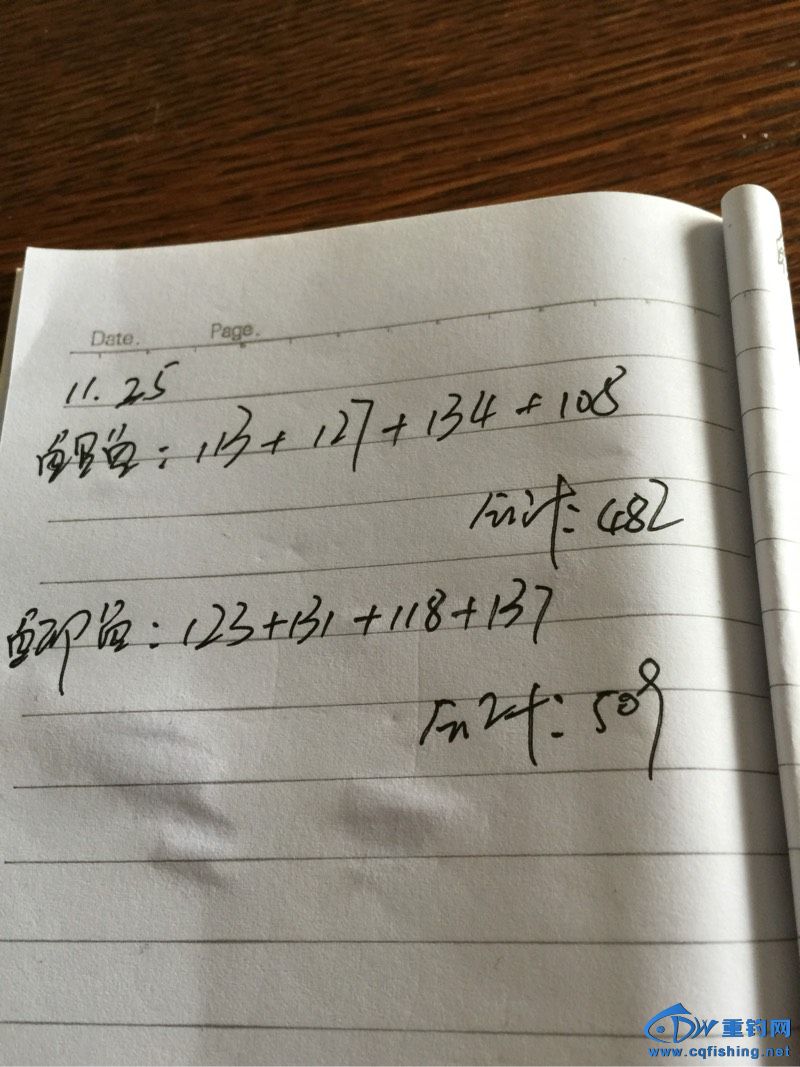 Date. Page.
11.25
鱼：113+127+134+108
计：482
鲫鱼：123+131+118+137
计：509
DW 重钓网
www.cqfishing.net